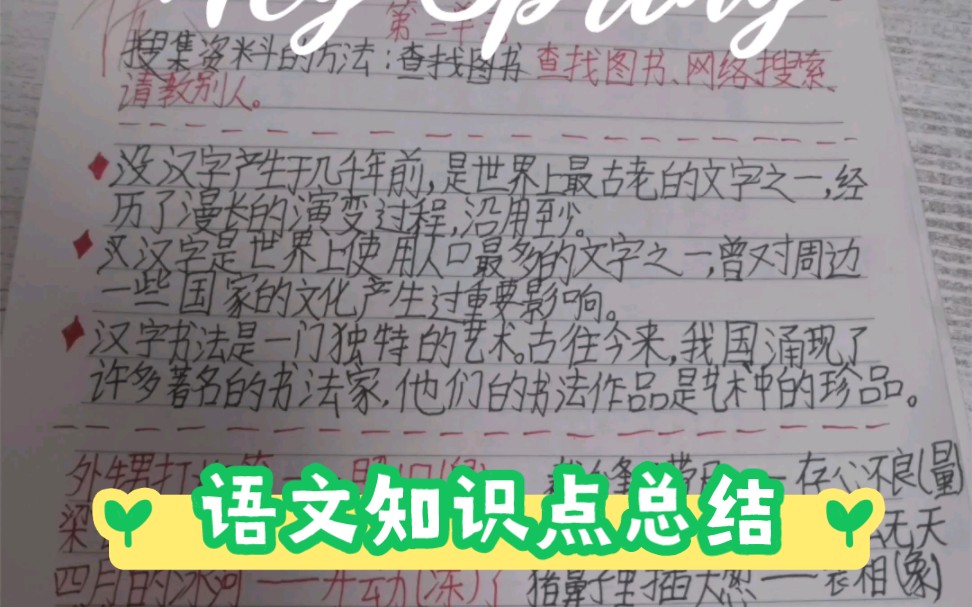 Hey Spring
第三单元
搜集资料的方法：查找图书 查找图书、网络搜索、
请教别人。
没汉字产生于几千年前，是世界上最古老的文字之一，经
历了漫长的演变过程，沿用至少。
汉字是世界上使用人口最多的文字之一，曾对周边
一些国家的文化产生过重要影响。
汉字书法是一门独特的艺术。古往今来，我国涌现了
许多著名的书法家，他们的书法作品是艺术中的珍品。
外甥打 存心不良(量)
语文知识点总结
梁 无天
四月的冰河——开动(冻)了 猪鼻子里插大葱——装相(象)